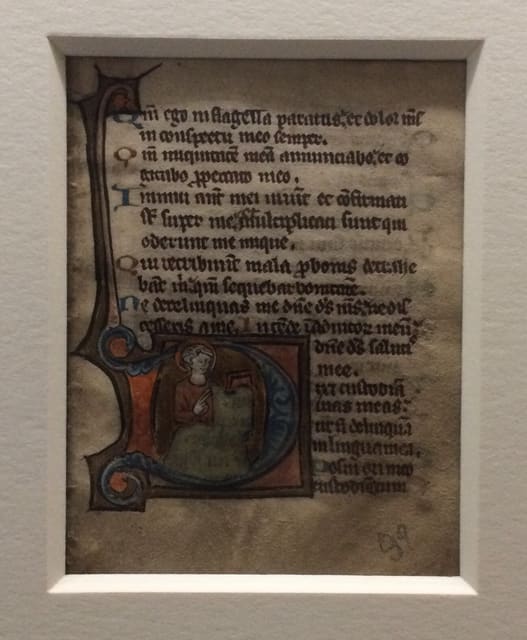 Qm̄ ego in flagella paratus: et dolor ms̄
in conspectu meo semper.
Qm̄ iniquitatē meā annunciabo: et co
gitabo ꝓ peccato meo.
Inimici aut̄ mei uiuūt et cōfirmati
st̄ super me: et multiplicati sunt qui
oderunt me inique.
Qui retribūnt mala ꝓ bonis detrahe
bāt m̄: qm̄ sequebar bonitatē.
Ne derelinquas me dn̄e ds̄ ms̄: ne dis
cesseris a me. Intēde ī adiutor meū
dn̄e ds̄ saluti
mee.
ixi custodiā
uias meas:
ut n̄ delinquā
in lingua mea.
Posui ori meo
custodiam